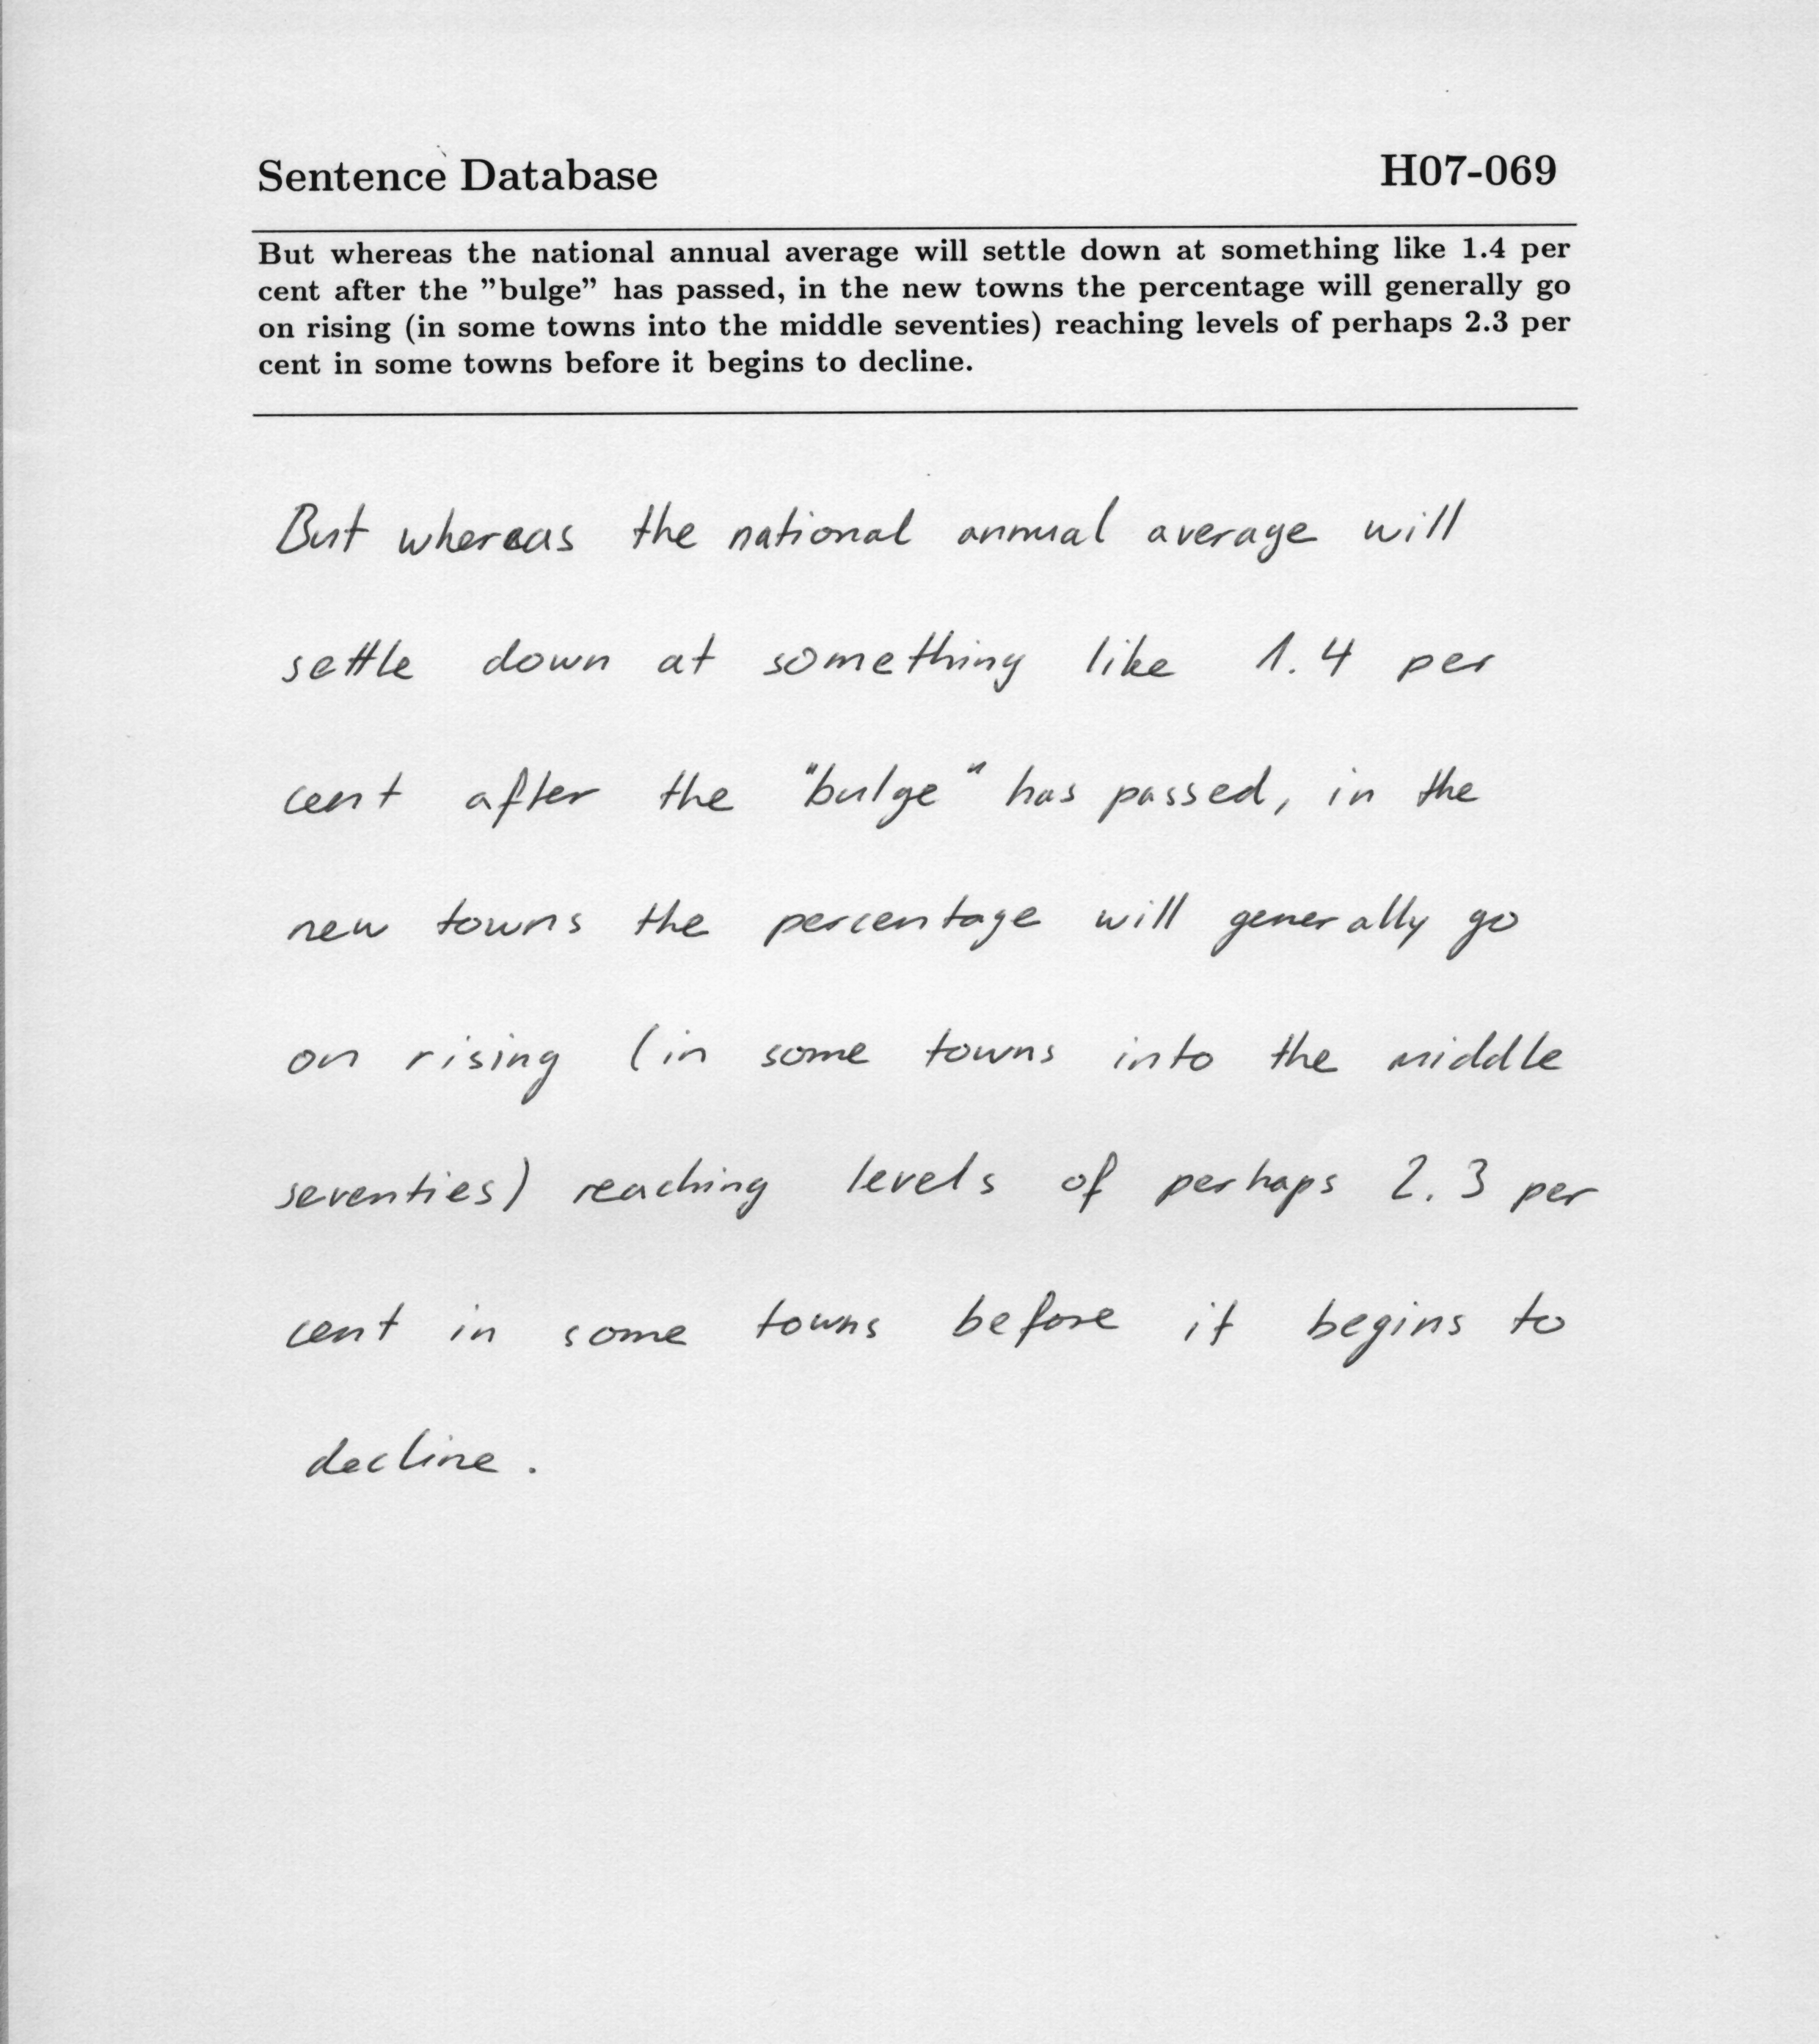 Sentence Database H07-069
But whereas the national annual average will settle down at something like 1.4 per
cent after the "bulge" has passed, in the new towns the percentage will generally go
on rising (in some towns into the middle seventies) reaching levels of perhaps 2.3 per
cent in some towns before it begins to decline.
But whereas the national annual average will
settle down at something like 1.4 per
cent after the "bulge" has passed, in the
new towns the percentage will generally go
on rising (in some towns into the middle
seventies) reaching levels of perhaps 2.3 per
cent in some towns before it begins to
decline.